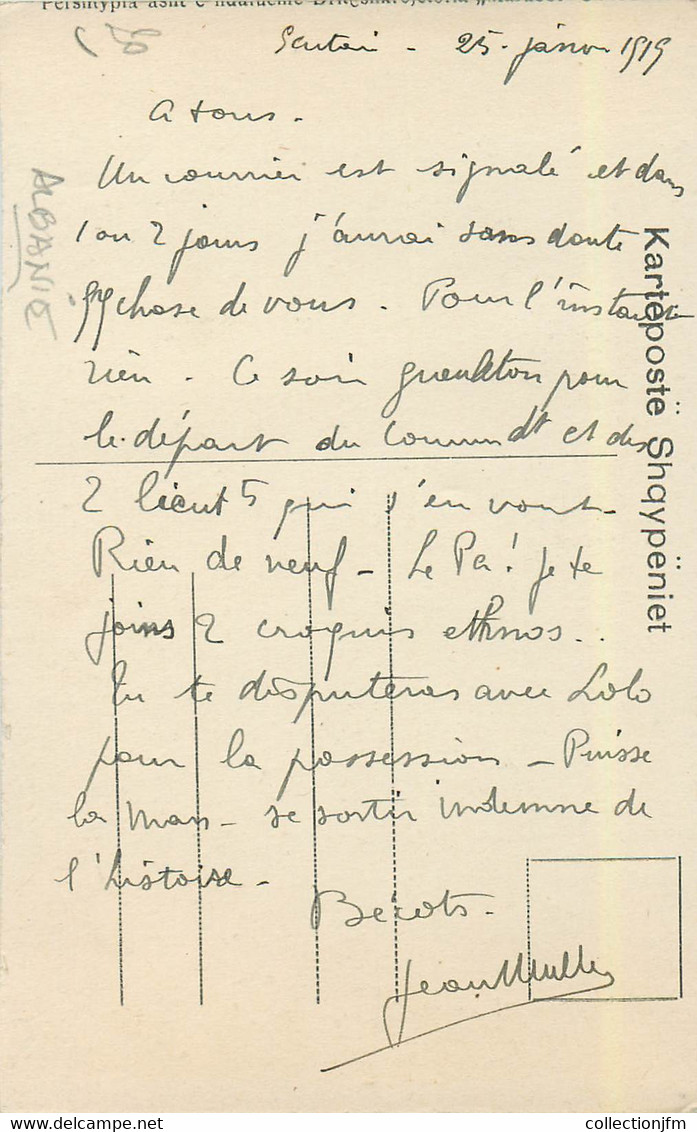 Përshtypja âsht e ndalueme
Scutari - 25 janvr 1919
A tous -
Un courrier est signalé et dans
1 ou 2 jours j'aurai sans doute
qq chose de vous. Pour l'instant
rien - Ce soir gueuleton pour
le départ du Command<sup>dt</sup> et des
2 lieut<sup>ts</sup> qui s'en vont -
Rien de neuf - Le Pa! je te
joins 2 croquis ethnos..
Tu te disputeras avec Lolo
pour la possession - Puisse
la Man - se sortir indemne de
l'histoire -
Bécots -
Jean Muller
ALBANIE
Kartëpostë Shqypëniet
www.delcampe.net
collectionjfm